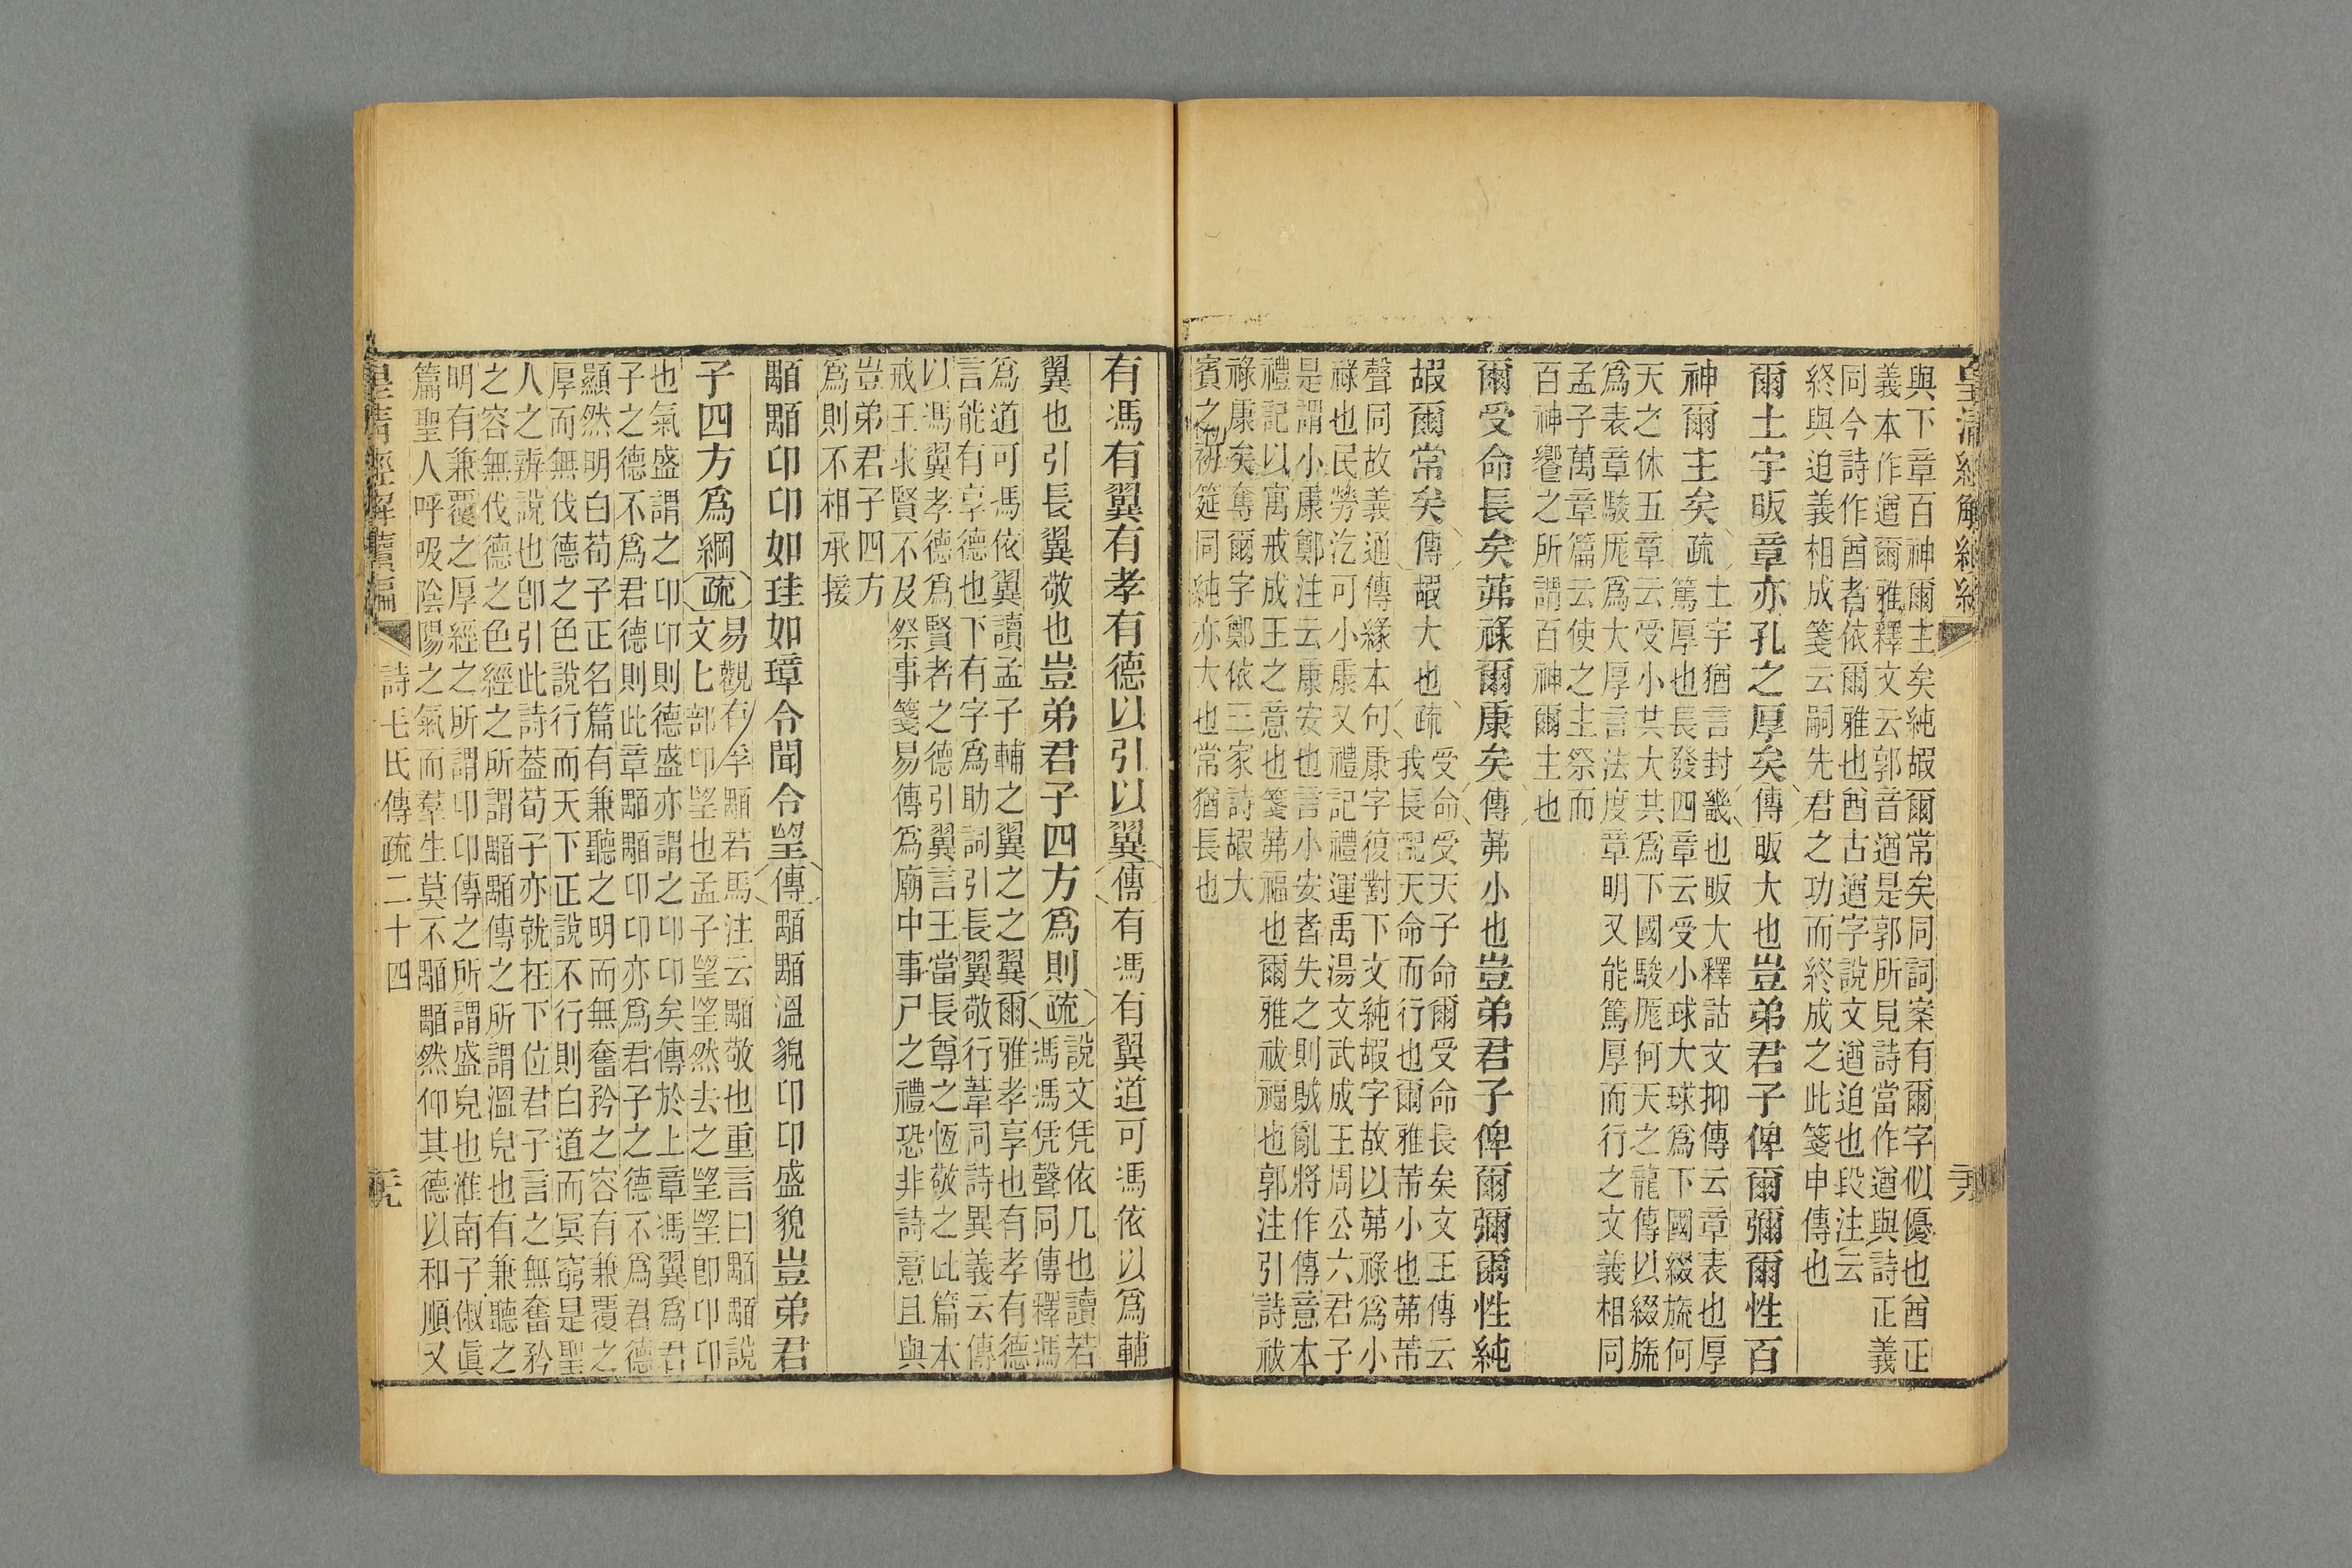 皇清經解續編
與下章百神爾主矣純嘏爾常矣同詞案有爾字似優也酋正
義本作遒爾雅釋文云郭音遒是郭所見詩當作遒與詩正義
同今詩作酋者依爾雅也酋古遒字說文遒迫也段注云
終與迫義相成箋云嗣先君之功而終成之此箋申傳也
爾土宇昄章亦孔之厚矣傳昄大也豈弟君子俾爾彌爾性百
神爾主矣疏
土宇猶言封畿也昄大釋詁文抑傳云章表也厚
篤厚也長發四章云受小球大球爲下國綴旒何
天之休五章云受小共大共爲下國駿厖何天之龍傳以綴旒
爲表章駿厖爲大厚言法度章明又能篤厚而行之文義相同
孟子萬章篇云使之主祭而
百神饗之所謂百神爾主也
爾受命長矣茀祿爾康矣傳茀小也豈弟君子俾爾彌爾性純
嘏爾常矣傳嘏大也疏
受命受天子命爾受命長矣文王傳云
我長配天命而行也爾雅芾小也茀芾
聲同故義通傳緣本句康字復對下文純嘏字故以茀祿爲小
祿也民勞汔可小康又禮記禮運禹湯文武成王周公六君子
是謂小康鄭注云康安也言小安者失之則賊亂將作傳意本
禮記以寓戒成王之意也箋茀福也爾雅祓福也郭注引詩祓
祿康矣奪爾字鄭依三家詩嘏大
賓之初筵同純亦大也常猶長也
有馮有翼有孝有德以引以翼傳有馮有翼道可馮依以爲輔
翼也引長翼敬也豈弟君子四方爲則疏
說文凭依几也讀若
馮馮凭聲同傳釋馮
爲道可馮依翼讀孟子輔之翼之之翼爾雅孝享也有孝有德
言能有享德也下有字爲助詞引長翼敬行葦同詩異義云傳
以馮翼孝德爲賢者之德引翼言王當長尊之恆敬之此篇本
戒王求賢不及祭事箋易傳爲廟中事尸之禮恐非詩意且與
豈弟君子四方
爲則不相承接
顒顒卬卬如珪如璋令聞令望傳顒顒溫貌卬卬盛貌豈弟君
子四方爲綱疏
易觀有孚顒若馬注云顒敬也重言曰顒顒說
文匕部卬望也孟子望望然去之望望卽卬卬
也氣盛謂之卬卬則德盛亦謂之卬卬矣傳於上章馮翼爲君
子之德不爲君德則此章顒顒卬卬亦爲君子之德不爲君德
顯然明白荀子正名篇有兼聽之明而無奮矜之容有兼覆之
厚而無伐德之色說行而天下正說不行則白道而冥窮是聖
人之辨說也卽引此詩葢荀子亦就在下位君子言之無奮矜
之容無伐德之色經之所謂顒顒傳之所謂溫皃也有兼聽之
明有兼覆之厚經之所謂卬卬傳之所謂盛皃也淮南子俶眞
篇聖人呼吸陰陽之氣而羣生莫不顒顒然仰其德以和順又
皇清經解續編
詩毛氏傳疏二十四